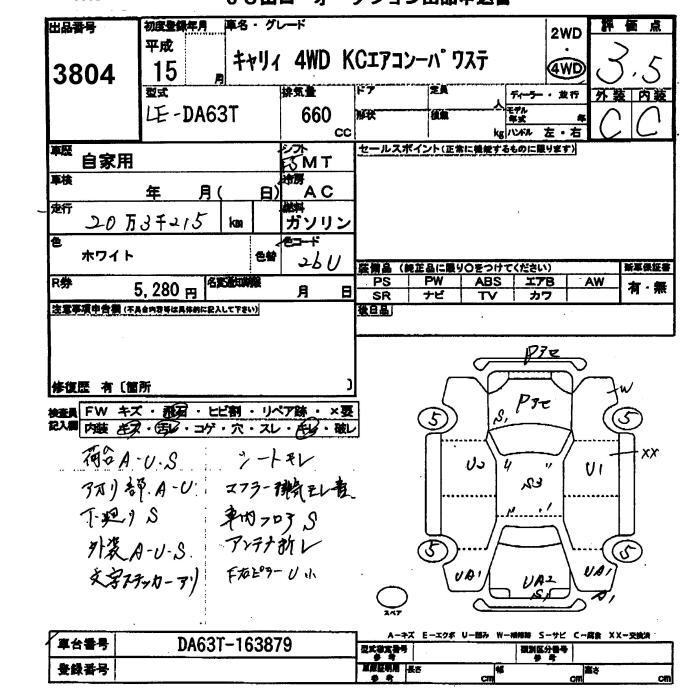 出品番号
3804
初度登録年月
平成
15 月
車名・グレード
キャリィ 4WD KCエアコンーパワステ
2WD
・
4WD
評価点
3.5
外装 内装
C C
型式
LE-DA63T
排気量
660
CC
ドア
形状
定員
人
積載
kg
ディーラー・並行
モデル年式 年
ハンドル 左・右
車歴
自家用
シフト
F5 MT
セールスポイント(正常に機能するものに限ります)
車検
年 月( 日)
冷房
AC
走行
20万3千215 km
燃料
ガソリン
色
ホワイト
色替
色コード
26U
R券
5,280円
名変通知期限
月 日
装備品(純正品に限り○をつけてください)
新車保証書
PS PW ABS エアB AW
SR ナビ TV カワ
有・無
注意事項申告欄(不具合内容等は具体的に記入して下さい)
後日品
修復歴 有〔箇所 〕
検査員
記入欄
FW キズ・飛石・ヒビ割・リペア跡・×要
内装 キズ・汚レ・コゲ・穴・スレ・キレ・破レ
荷台A・U・S
シートモレ
アオリ部.A-U
マフラー排気モレ音
下廻りS
車内フロアS
外装A-U-S
アンテナ折レ
文字ステッカーアリ
F右ピラーU小
Pアセ
Pアセ
W
S1
5
5
XX
U2
U1
S3
5
5
UA1
UA2
S1
UA1
A1
スペア
A-キズ E-エクボ U-凹み W-補修跡 S-サビ C-腐食 XX-交換済
車台番号
DA63T-163879
登録番号
型式指定番号
参考
類別区分番号
参考
車庫証明用
参考
長さ cm
幅 cm
高さ cm